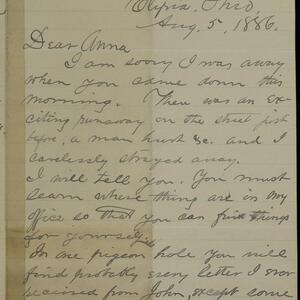 Elyria, Ohio,
Aug. 5, 1886.
Dear Anna
I am sorry I was away
when you came down this
morning. There was an ex-
citing runaway on the street just
before, a man hurt &c. and I
carelessly strayed away.
I will tell you. You must
learn where things are in my
office so that you can find things
for yourself.
In one pigeon hole you will
find probably every letter I ever
received from John, except some